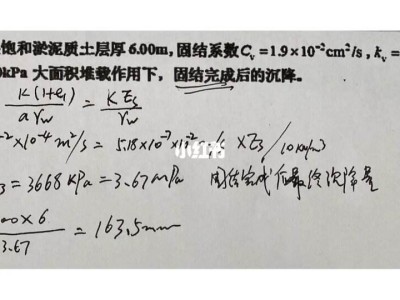 饱和淤泥质土层厚6.00m,固结系数Cᵥ=1.9×10⁻²cm²/s,kᵥ=
kPa 大面积堆载作用下,固结完成后的沉降。
K(1+e₁)/aγw = KEs/γw
⁻²×10⁻⁴m²/s = 5.18×10⁻⁷×10⁻² ×Es/10
=3668kPa=3.67mPa 固结完成后最终沉降量
×6/3.67 = 163.5mm
小红书